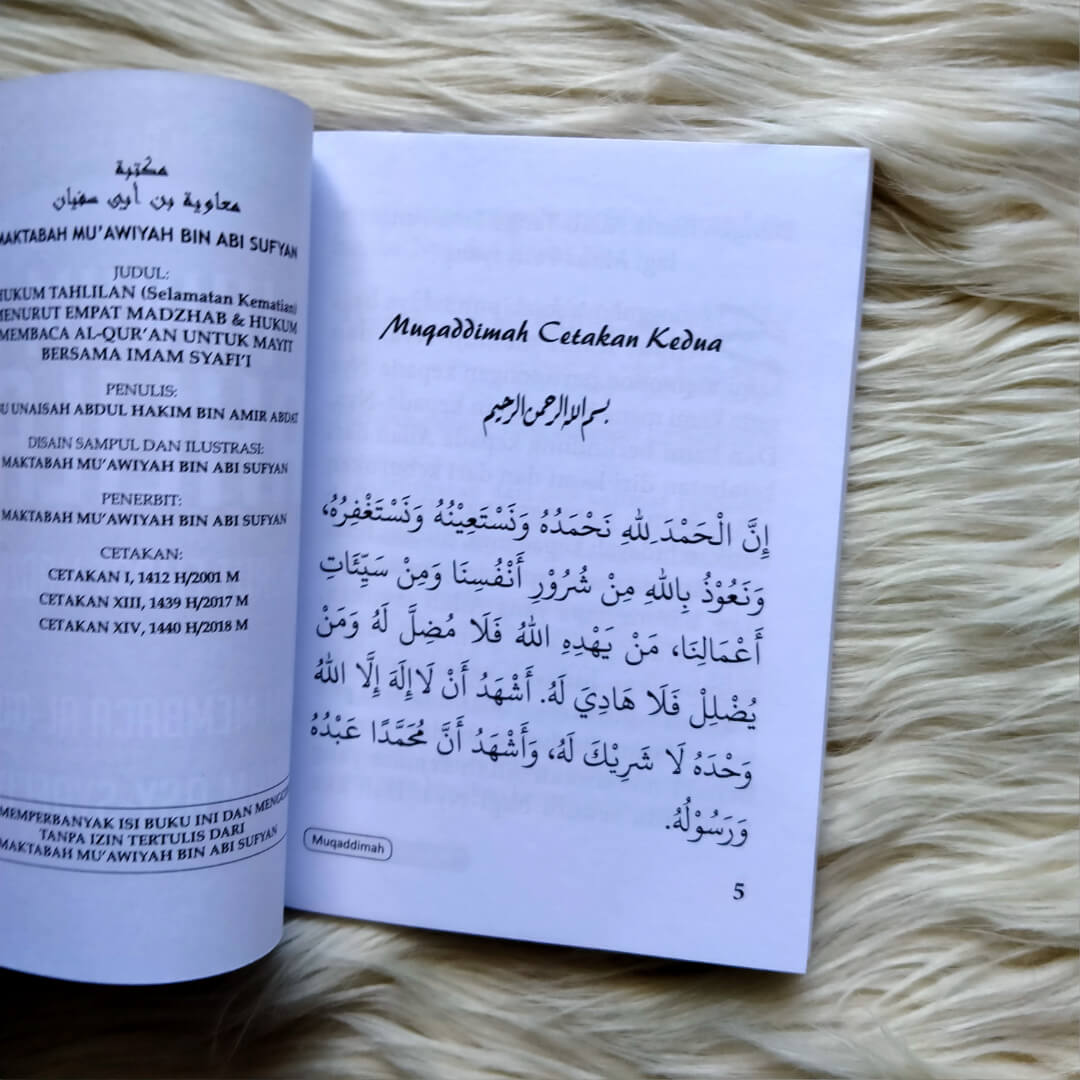 مكتبة
معاوية بن أبي سفيان
MAKTABAH MU'AWIYAH BIN ABI SUFYAN
JUDUL:
HUKUM TAHLILAN (Selamatan Kematian)
MENURUT EMPAT MADZHAB & HUKUM
MEMBACA AL-QUR'AN UNTUK MAYIT
BERSAMA IMAM SYAFI'I
PENULIS:
UNAISAH ABDUL HAKIM BIN AMIR ABDAT
DISAIN SAMPUL DAN ILUSTRASI:
MAKTABAH MU'AWIYAH BIN ABI SUFYAN
PENERBIT:
MAKTABAH MU'AWIYAH BIN ABI SUFYAN
CETAKAN:
CETAKAN I, 1412 H/2001 M
CETAKAN XIII, 1439 H/2017 M
CETAKAN XIV, 1440 H/2018 M
MEMPERBANYAK ISI BUKU INI DAN
TANPA IZIN TERTULIS DARI
MAKTABAH MU'AWIYAH BIN ABI SUFYAN
Muqaddimah Cetakan Kedua
بسم الله الرحمن الرحيم
إِنَّ الْحَمْدَ لِلهِ نَحْمَدُهُ وَنَسْتَعِيْنُهُ وَنَسْتَغْفِرُهُ،
وَنَعُوْذُ بِاللهِ مِنْ شُرُوْرِ أَنْفُسِنَا وَمِنْ سَيِّئَاتِ
أَعْمَالِنَا، مَنْ يَهْدِهِ اللهُ فَلَا مُضِلَّ لَهُ وَمَنْ
يُضْلِلْ فَلَا هَادِيَ لَهُ. أَشْهَدُ أَنْ لَاإِلَهَ إِلَّا اللهُ
وَحْدَهُ لَا شَرِيْكَ لَهُ، وَأَشْهَدُ أَنَّ مُحَمَّدًا عَبْدُهُ
وَرَسُوْلُهُ.
Muqaddimah
5